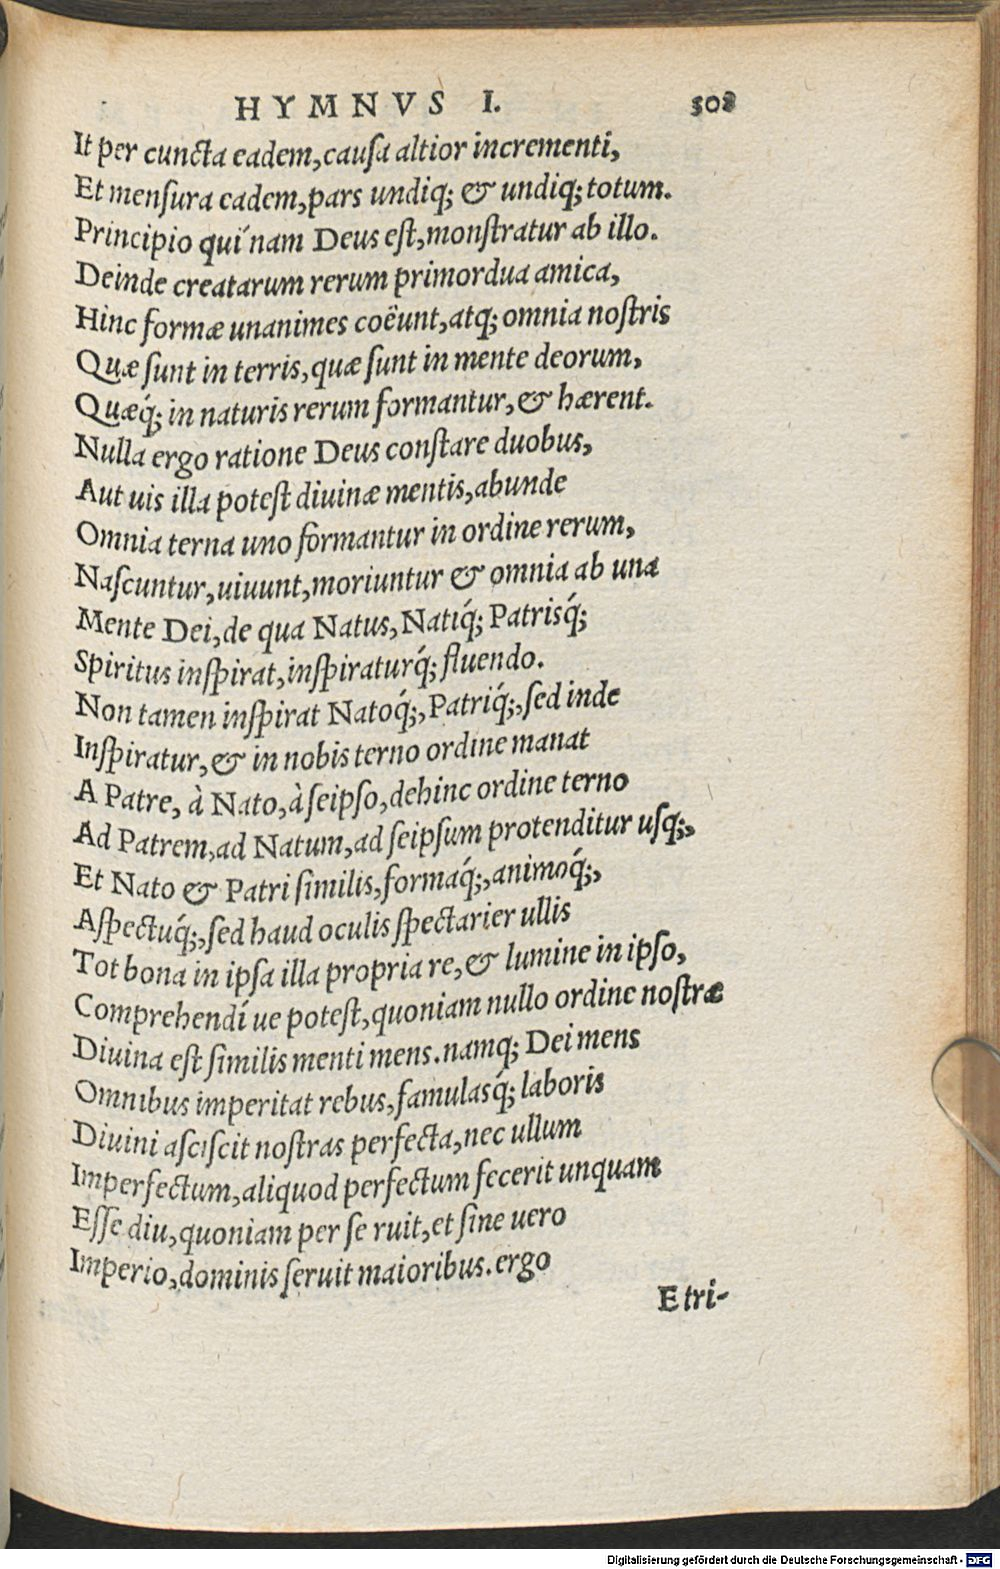 HYMNVS I. 308
It per cuncta eadem, causa altior incrementi,
Et mensura eadem, pars undiq; & undiq; totum.
Principio qui nam Deus est, monstratur ab illo.
Deinde creatarum rerum primordua amica,
Hinc formæ unanimes coëunt, atq; omnia nostris
Quæ sunt in terris, quæ sunt in mente deorum,
Quæq́; in naturis rerum formantur, & hærent.
Nulla ergo ratione Deus constare duobus,
Aut uis illa potest diuinæ mentis, abunde
Omnia terna uno formantur in ordine rerum,
Nascuntur, uiuunt, moriuntur & omnia ab una
Mente Dei, de qua Natus, Natiq́; Patrisq́;
Spiritus inspirat, inspiraturq́; fluendo.
Non tamen inspirat Natoq́;, Patriq́;, sed inde
Inspiratur, & in nobis terno ordine manat
A Patre, à Nato, à seipso, dehinc ordine terno
Ad Patrem, ad Natum, ad seipsum protenditur usq;,
Et Nato & Patri similis, formaq́;, animoq́;,
Aspectuq́;, sed haud oculis spectarier ullis
Tot bona in ipsa illa propria re, & lumine in ipso,
Comprehendí ue potest, quoniam nullo ordine nostræ
Diuina est similis menti mens. namq; Dei mens
Omnibus imperitat rebus, famulasq́; laboris
Diuini asciscit nostras perfecta, nec ullum
Imperfectum, aliquod perfectum fecerit unquam
Esse diu, quoniam per se ruit, et sine uero
Imperio, dominis seruit maioribus. ergo
E tri-
Digitalisierung gefördert durch die Deutsche Forschungsgemeinschaft - DFG